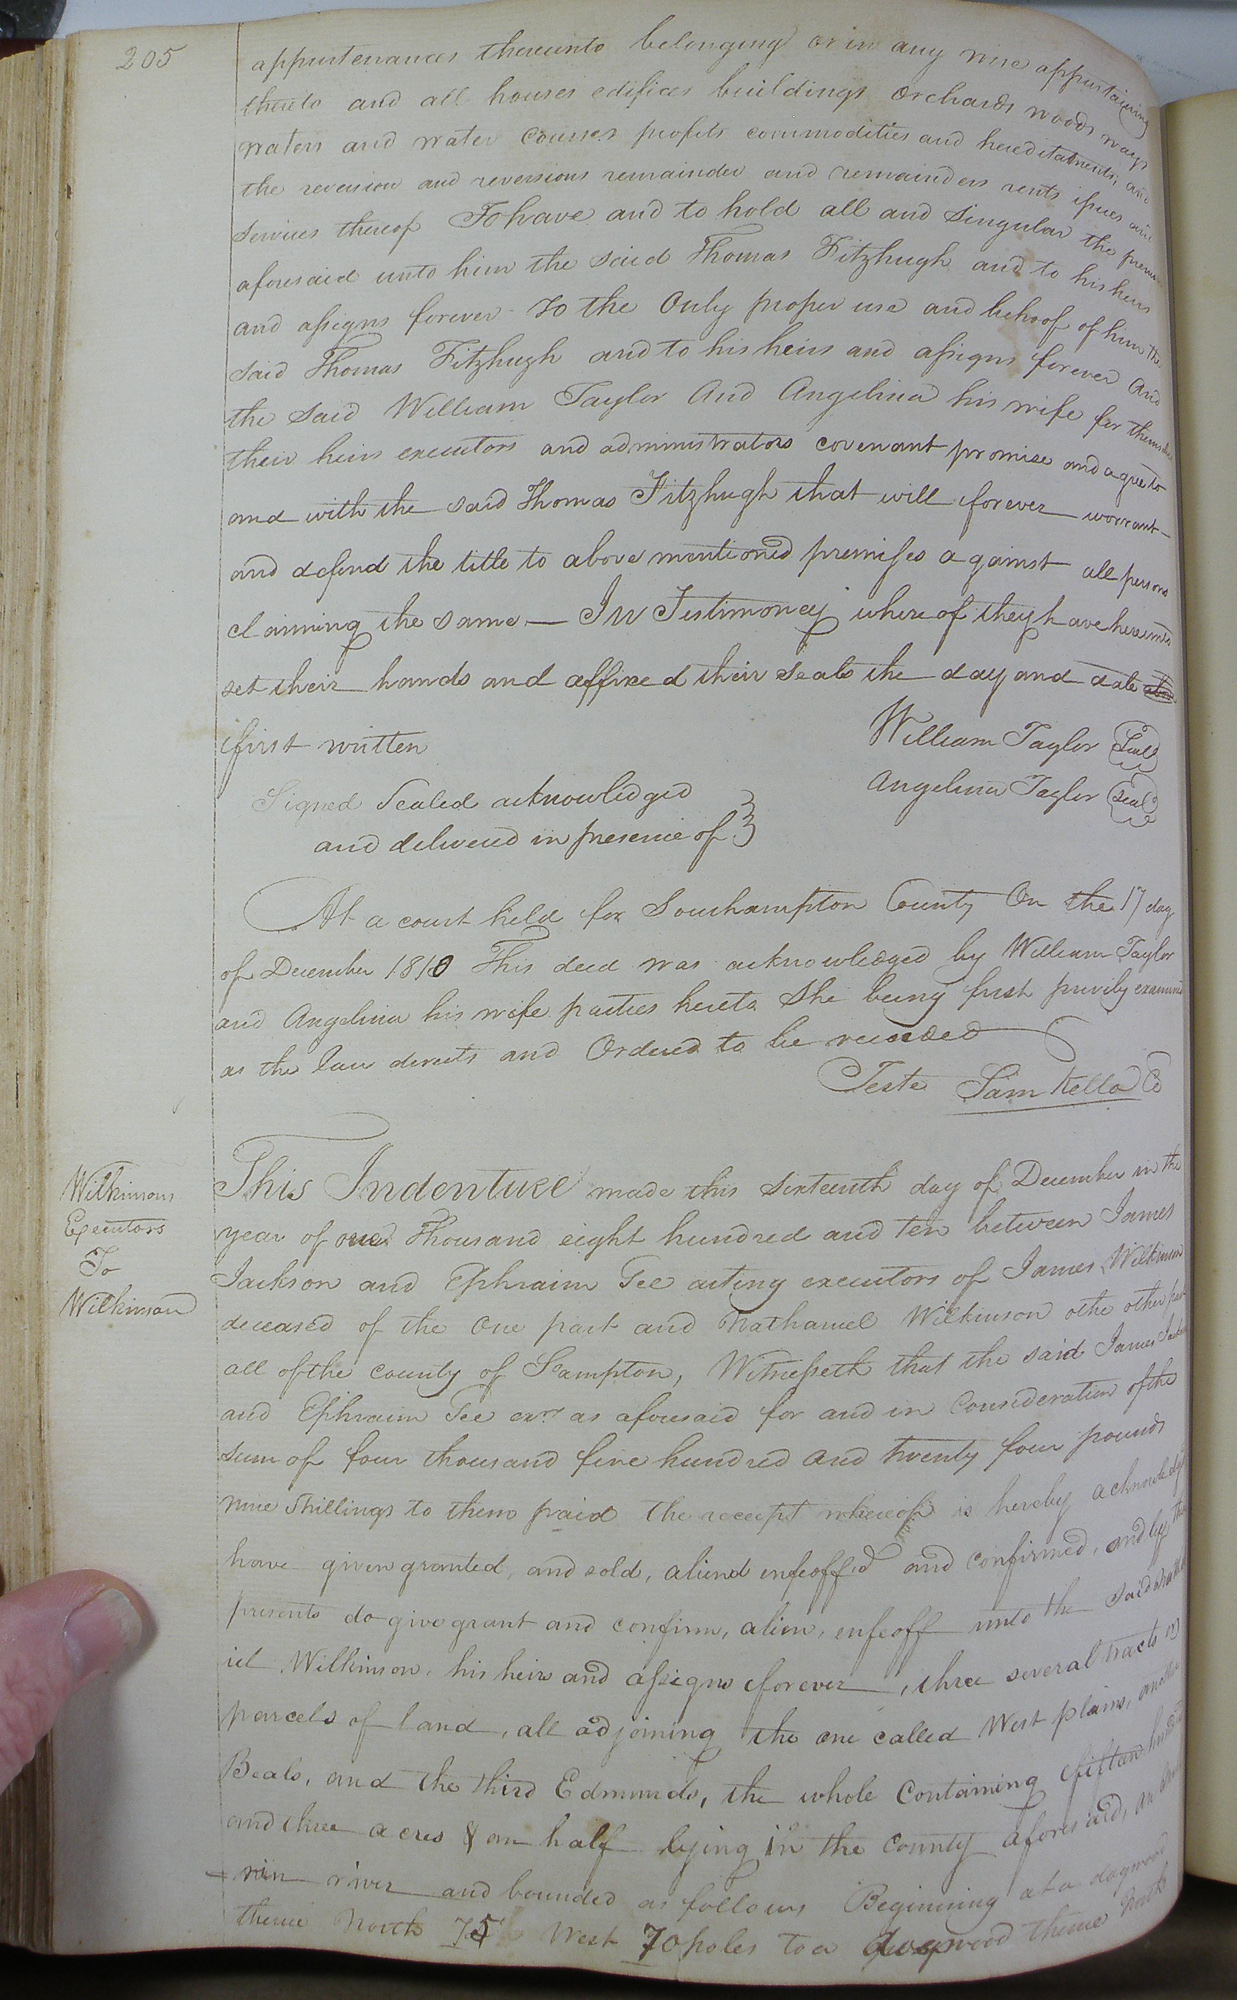 205
appurtenances thereunto belonging or in any wise appertaining
thereto and all houses edifices buildings orchards woods ways
waters and water courses profits commodities and hereditaments, and
the reversion and reversions remainder and remainders rents issues and
services thereof To have and to hold all and Singular the
aforesaid unto him the said Thomas Fitzhugh and to his heirs
and assigns forever To the Only proper use and behoof of him the
said Thomas Fitzhugh and to his heirs and assigns forever And
the said William Taylor And Angelina his wife for
their heirs executors and administrators covenant promise and agree to
and with the said Thomas Fitzhugh that will forever warrant
and defend the title to above mentioned premises against all persons
claiming the same — In Testimoney whereof they have hereunto
set their hands and affixed their seals the day and date
first written
William Taylor Seal
Angelina Taylor Seal
Signed Sealed acknowledged
and delivered in presence of
At a court held for Southampton County On the 17 day
of December 1810 This deed was acknowledged by William Taylor
and Angelina his wife parties hereto She being first privily
as the law directs and Ordered to be recorded
Teste Sam Kello CC
Wilkinsons
Executors
To
Wilkinson
This Indenture made this Sixteenth day of December in the
year of one Thousand eight hundred and ten between James
Jackson and Ephraim Gee acting executors of James Wilkinson
deceased of the One part and Nathaniel Wilkinson othe other part
all of the county of Shampton, Witnesseth that the said James
and Ephraim Gee exrs as aforesaid for and in Consideration of the
sum of four thousand five hundred and twenty four pounds
nine Shillings to them paid the receipt whereof is hereby
have given granted, and sold, aliend enfeoffed and confirmed, and by
presents do give grant and confirm, alien, enfeoff unto the said
iel Wilkinson, his heirs and assigns forever, three several tracts or
parcels of land, all adjoining the one called West plains, another
Beals, and the third Edmunds, the whole Containing fifteen hundred
and three acres & an half lying in the county aforesaid, on
rin river and bounded as follows Beginning at a dogwood
thence North 75 West 70 poles to a dogwood thence North